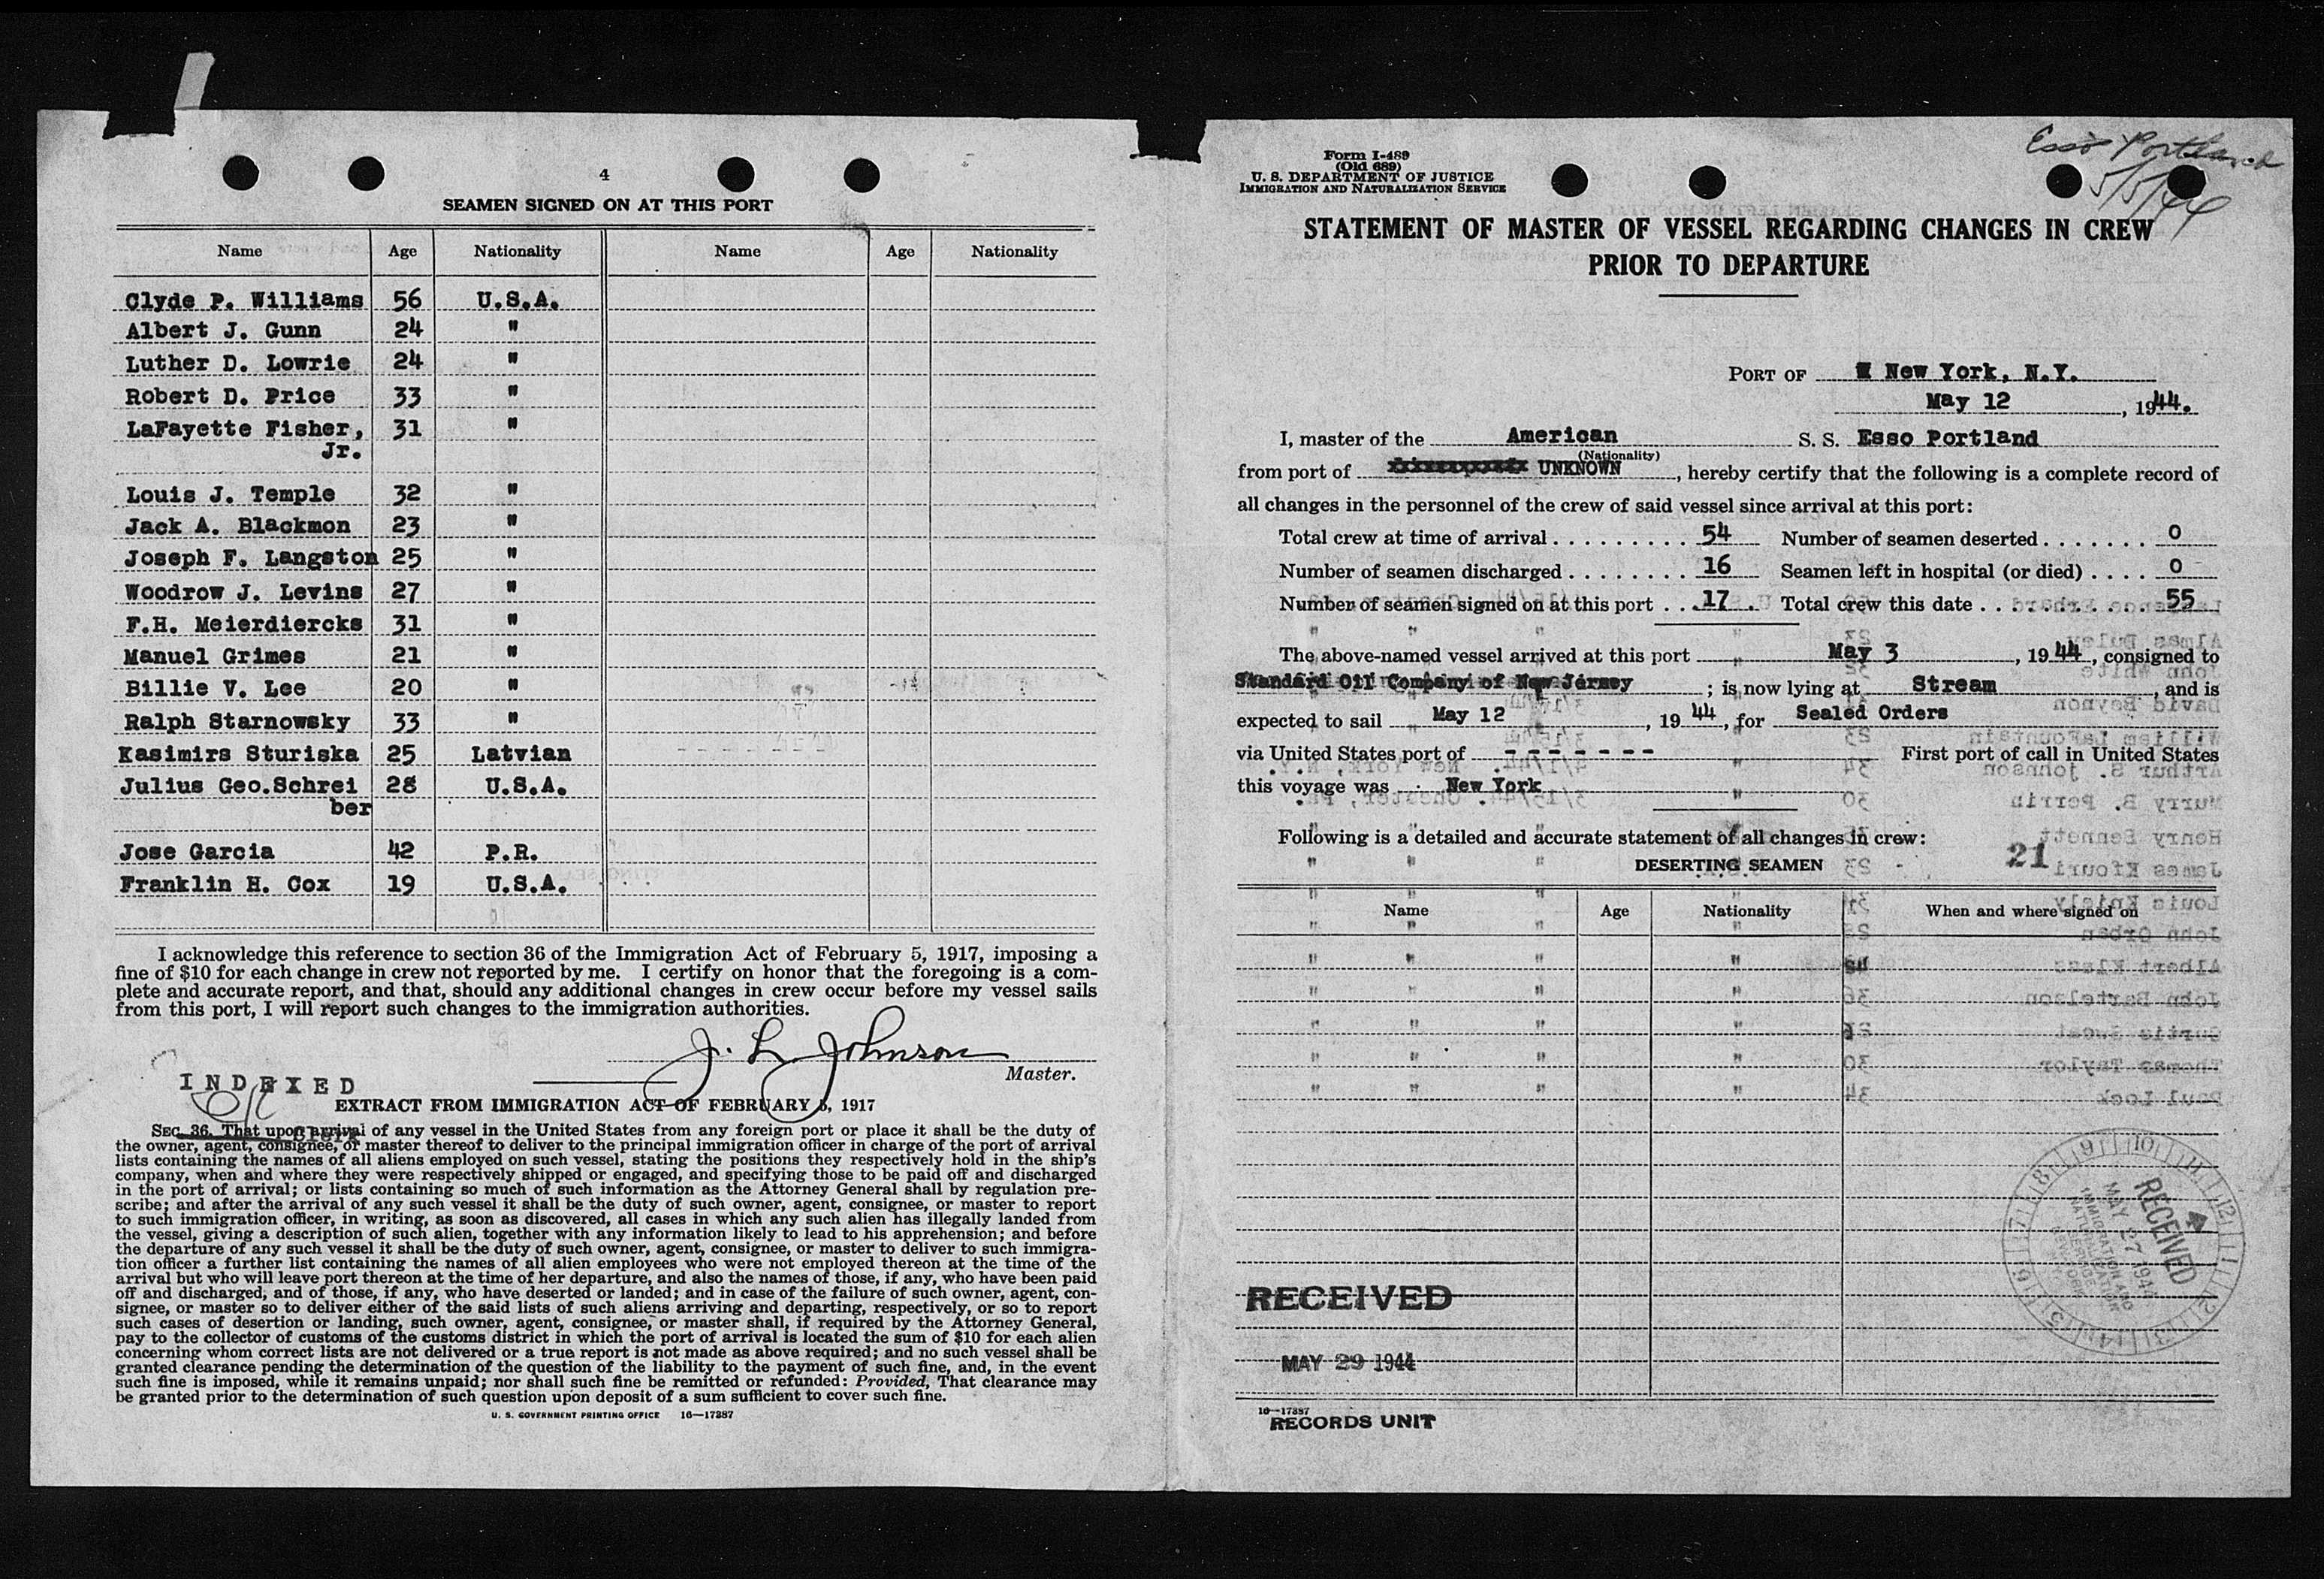 4
SEAMEN SIGNED ON AT THIS PORT
Name Age Nationality Name Age Nationality
Clyde P. Williams 56 U.S.A.
Albert J. Gunn 24 "
Luther D. Lowrie 24 "
Robert D. Price 33 "
LaFayette Fisher, 31 "
Jr.
Louis J. Temple 32 "
Jack A. Blackmon 23 "
Joseph F. Langston 25 "
Woodrow J. Levins 27 "
F.H. Meierdiercks 31 "
Manuel Grimes 21 "
Billie V. Lee 20 "
Ralph Starnowsky 33 "
Kasimirs Sturiska 25 Latvian
Julius Geo.Schrei 28 U.S.A.
ber
Jose Garcia 42 P.R.
Franklin H. Cox 19 U.S.A.
I acknowledge this reference to section 36 of the Immigration Act of February 5, 1917, imposing a
fine of $10 for each change in crew not reported by me. I certify on honor that the foregoing is a com-
plete and accurate report, and that, should any additional changes in crew occur before my vessel sails
from this port, I will report such changes to the immigration authorities.
J. L. Johnson
Master.
INDEXED
EXTRACT FROM IMMIGRATION ACT OF FEBRUARY 5, 1917
Clerk
SEC. 36. That upon arrival of any vessel in the United States from any foreign port or place it shall be the duty of
the owner, agent, consignee, or master thereof to deliver to the principal immigration officer in charge of the port of arrival
lists containing the names of all aliens employed on such vessel, stating the positions they respectively hold in the ship's
company, when and where they were respectively shipped or engaged, and specifying those to be paid off and discharged
in the port of arrival; or lists containing so much of such information as the Attorney General shall by regulation pre-
scribe; and after the arrival of any such vessel it shall be the duty of such owner, agent, consignee, or master to report
to such immigration officer, in writing, as soon as discovered, all cases in which any such alien has illegally landed from
the vessel, giving a description of such alien, together with any information likely to lead to his apprehension; and before
the departure of any such vessel it shall be the duty of such owner, agent, consignee, or master to deliver to such immigra-
tion officer a further list containing the names of all alien employees who were not employed thereon at the time of the
arrival but who will leave port thereon at the time of her departure, and also the names of those, if any, who have been paid
off and discharged, and of those, if any, who have deserted or landed; and in case of the failure of such owner, agent, con-
signee, or master so to deliver either of the said lists of such aliens arriving and departing, respectively, or so to report
such cases of desertion or landing, such owner, agent, consignee, or master shall, if required by the Attorney General,
pay to the collector of customs of the customs district in which the port of arrival is located the sum of $10 for each alien
concerning whom correct lists are not delivered or a true report is not made as above required; and no such vessel shall be
granted clearance pending the determination of the question of the liability to the payment of such fine, and, in the event
such fine is imposed, while it remains unpaid; nor shall such fine be remitted or refunded: Provided, That clearance may
be granted prior to the determination of such question upon deposit of a sum sufficient to cover such fine.
U. S. GOVERNMENT PRINTING OFFICE 16—17287
Esso Portland
5/5/44
Form I-489
(Old 689)
U. S. DEPARTMENT OF JUSTICE
IMMIGRATION AND NATURALIZATION SERVICE
STATEMENT OF MASTER OF VESSEL REGARDING CHANGES IN CREW
PRIOR TO DEPARTURE
PORT OF New York, N.Y.
May 12, 1944.
I, master of the American S. S. Esso Portland
(Nationality)
from port of UNKNOWN, hereby certify that the following is a complete record of
all changes in the personnel of the crew of said vessel since arrival at this port:
Total crew at time of arrival . . . . . . . . . 54 Number of seamen deserted . . . . . . . 0
Number of seamen discharged . . . . . . . . 16 Seamen left in hospital (or died) . . . . 0
Number of seamen signed on at this port . . 17 Total crew this date . . . . . . . . . 55
The above-named vessel arrived at this port May 3, 1944, consigned to
Standard Oil Company of New Jersey; is now lying at Stream, and is
expected to sail May 12, 1944, for Sealed Orders
via United States port of - - - - - - - First port of call in United States
this voyage was New York
Following is a detailed and accurate statement of all changes in crew:
21
DESERTING SEAMEN
Name Age Nationality When and where signed on
RECEIVED
MAY 27 1944
IMMIGRATION AND
NATURALIZATION
SERVICE
NEW YORK
RECEIVED
MAY 29 1944
16—17287
RECORDS UNIT